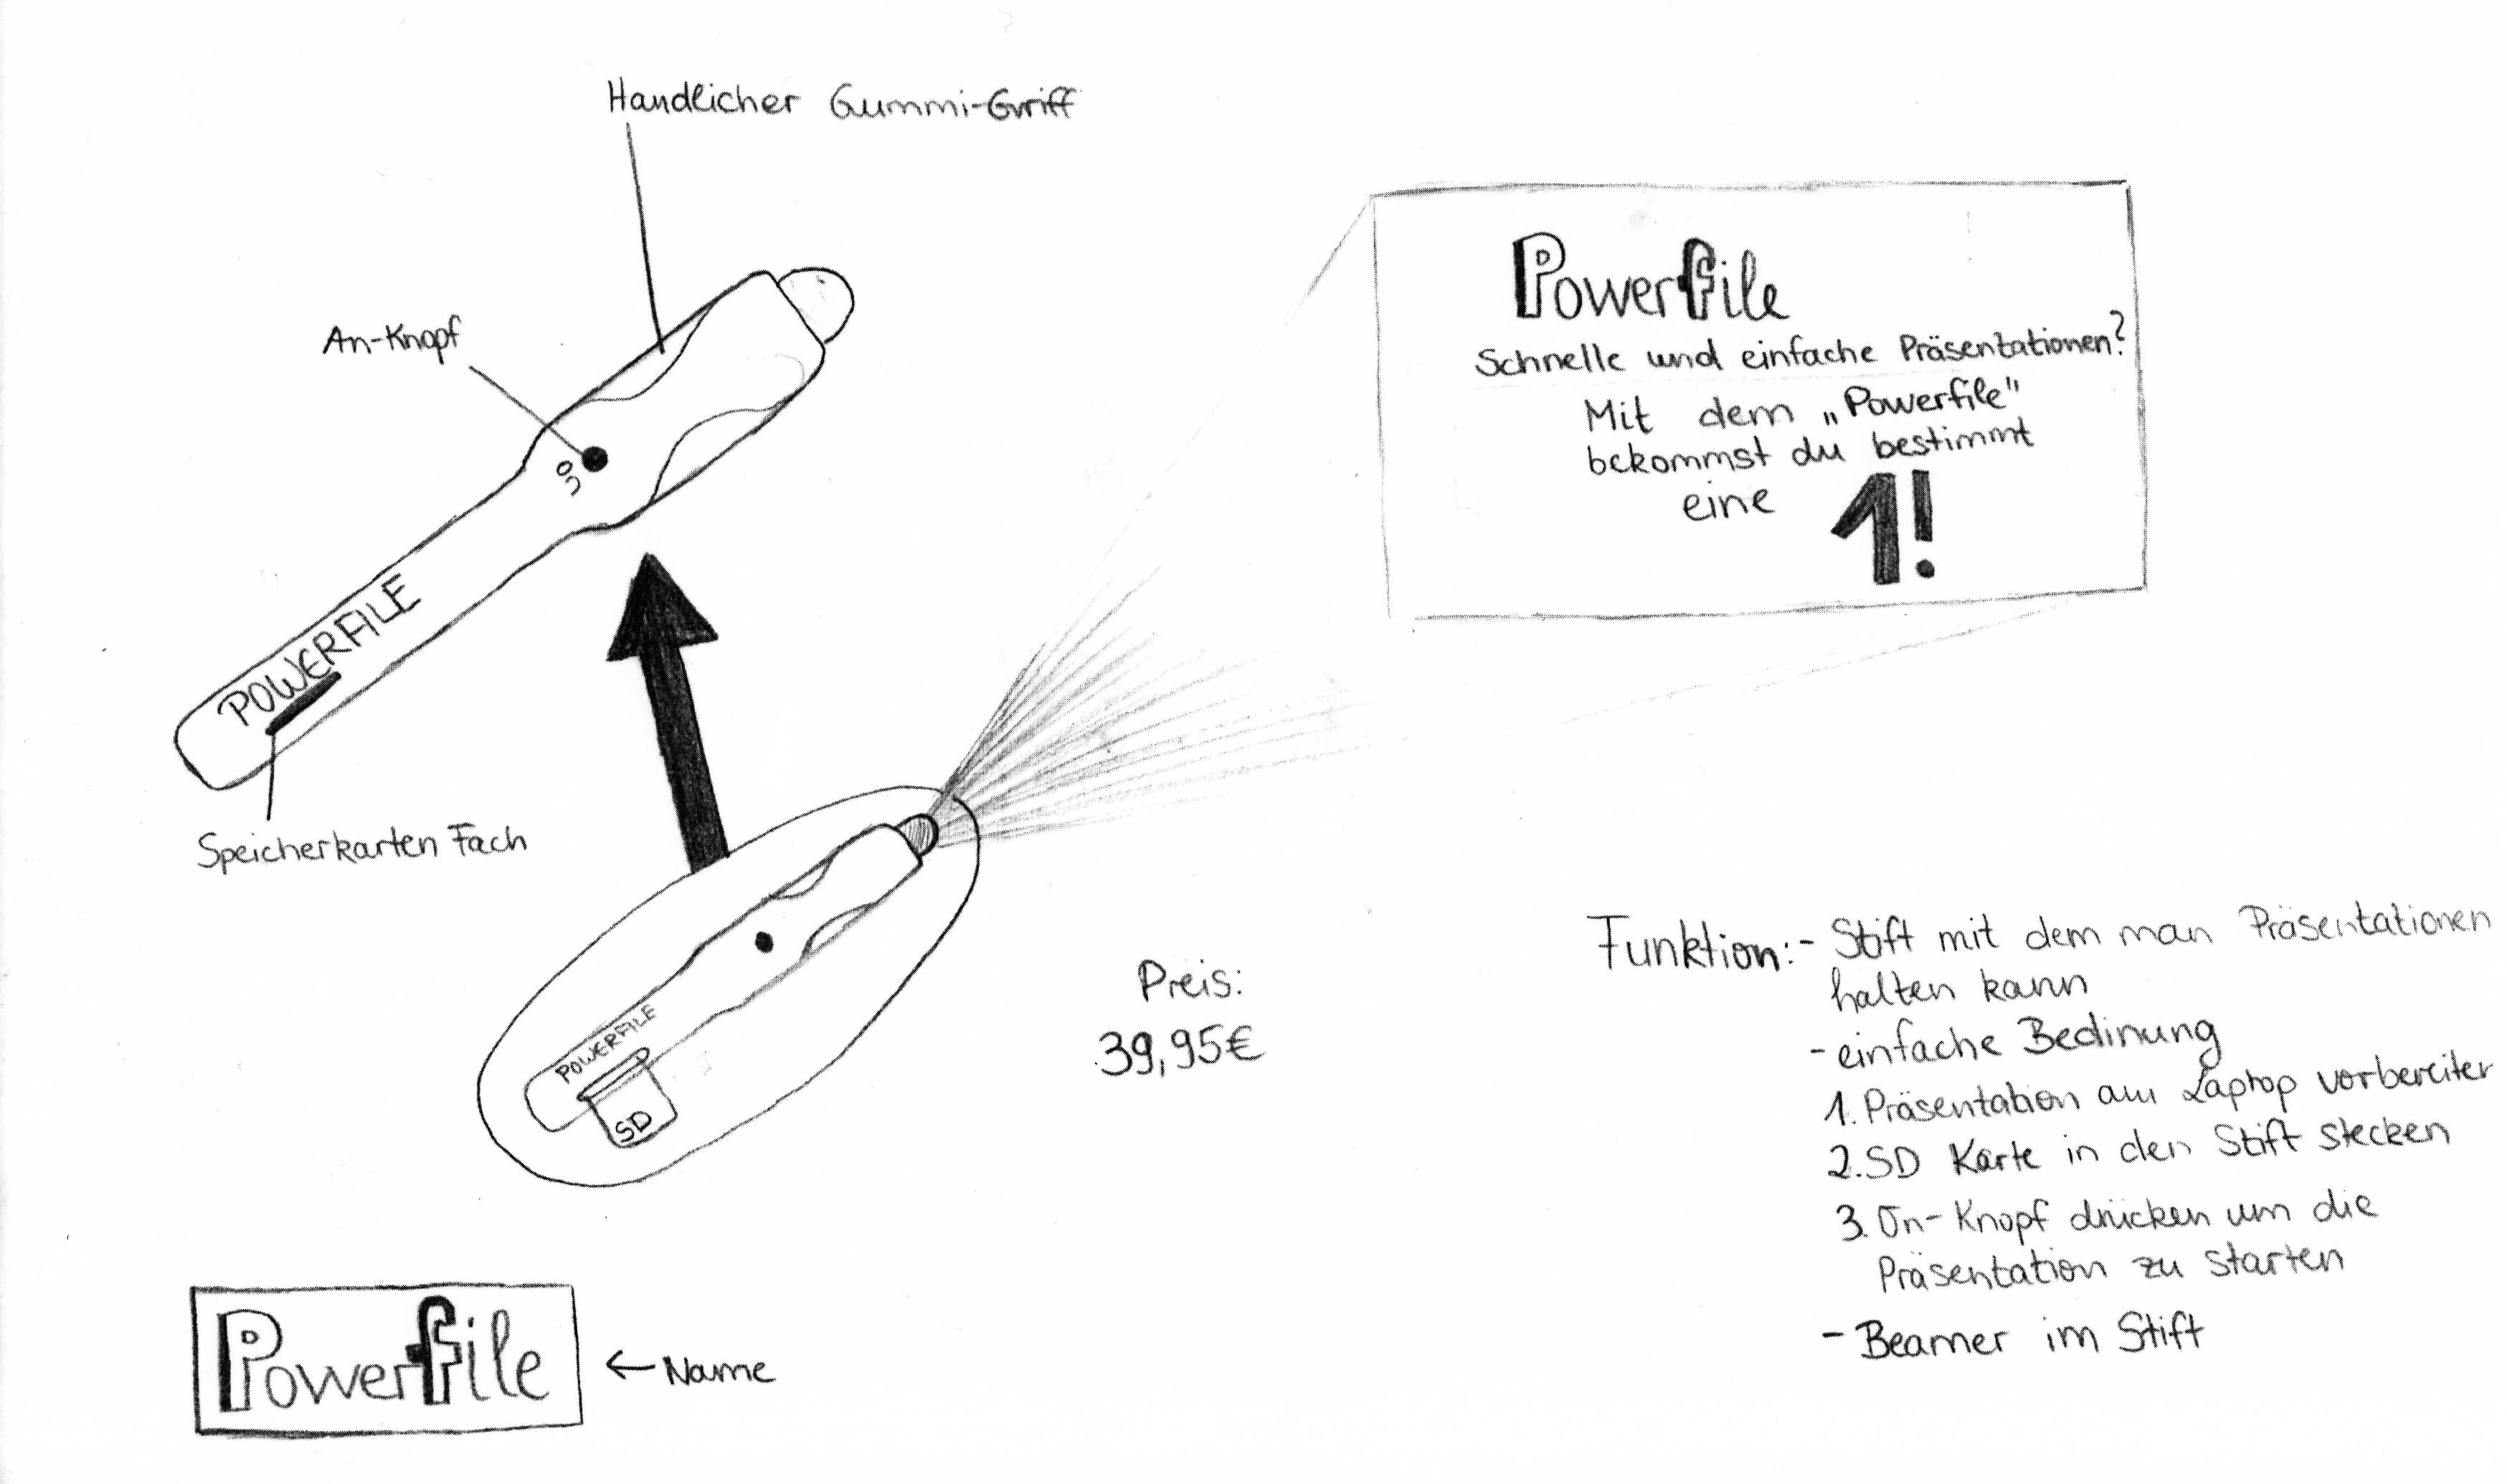 Handlicher Gummi-Griff
An-Knopf
On
POWERFILE
Speicherkarten Fach
Powerfile
Schnelle und einfache Präsentationen?
Mit dem „Powerfile"
bekommst du bestimmt
eine 1!
POWERFILE
SD
Preis:
39,95€
Funktion: - Stift mit dem man Präsentationen
halten kann
- einfache Bedinung
1. Präsentation am Laptop vorbereiten
2. SD Karte in den Stift stecken
3. On-Knopf drücken um die
Präsentation zu starten
- Beamer im Stift
Powerfile
← Name